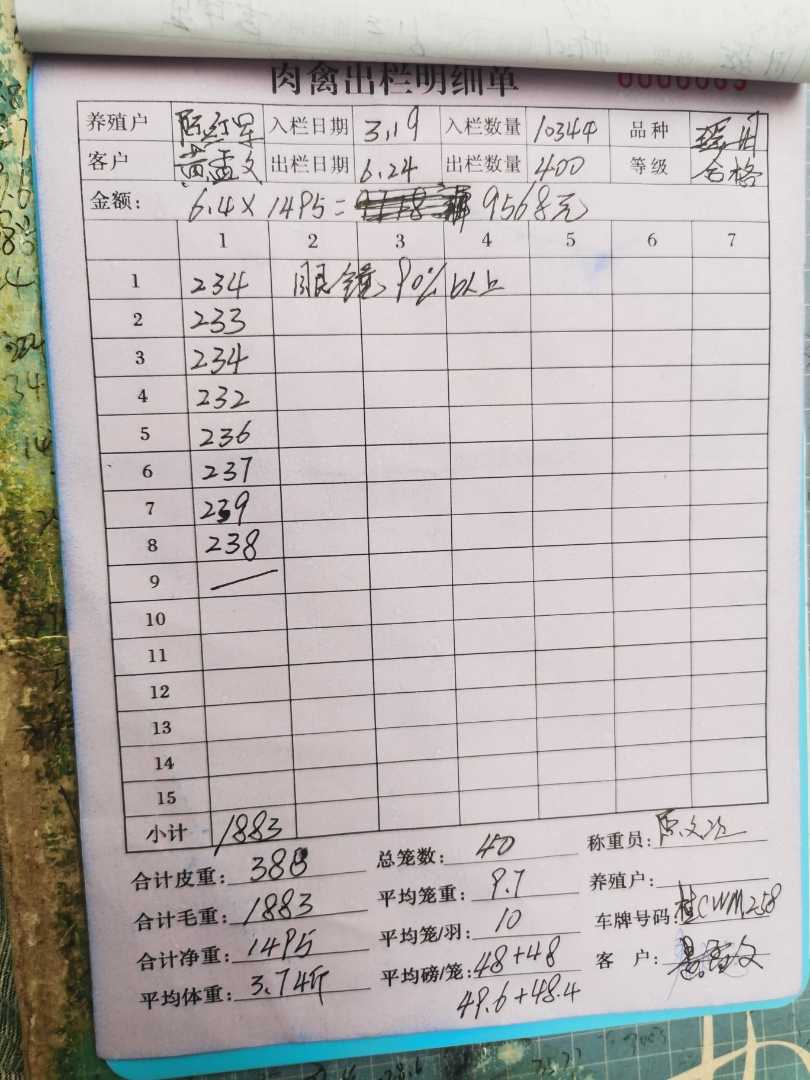 肉禽出栏明细单 0000069
养殖户 陈红军 入栏日期 3.19 入栏数量 10344 品种
客户 黄孟文 出栏日期 6.24 出栏数量 400 等级 合格
金额: 6.4×1495= 9568元
1 2 3 4 5 6 7
1 234 眼镜90%以上
2 233
3 234
4 232
5 236
6 237
7 239
8 238
9
10
11
12
13
14
15
小计 1883
合计皮重: 388 总笼数: 40 称重员:
合计毛重: 1883 平均笼重: 9.7 养殖户:
合计净重: 1495 平均笼/羽: 10 车牌号码: 桂CWM258
平均体重: 3.74斤 平均磅/笼: 48+48 客 户:
49.6+48.4